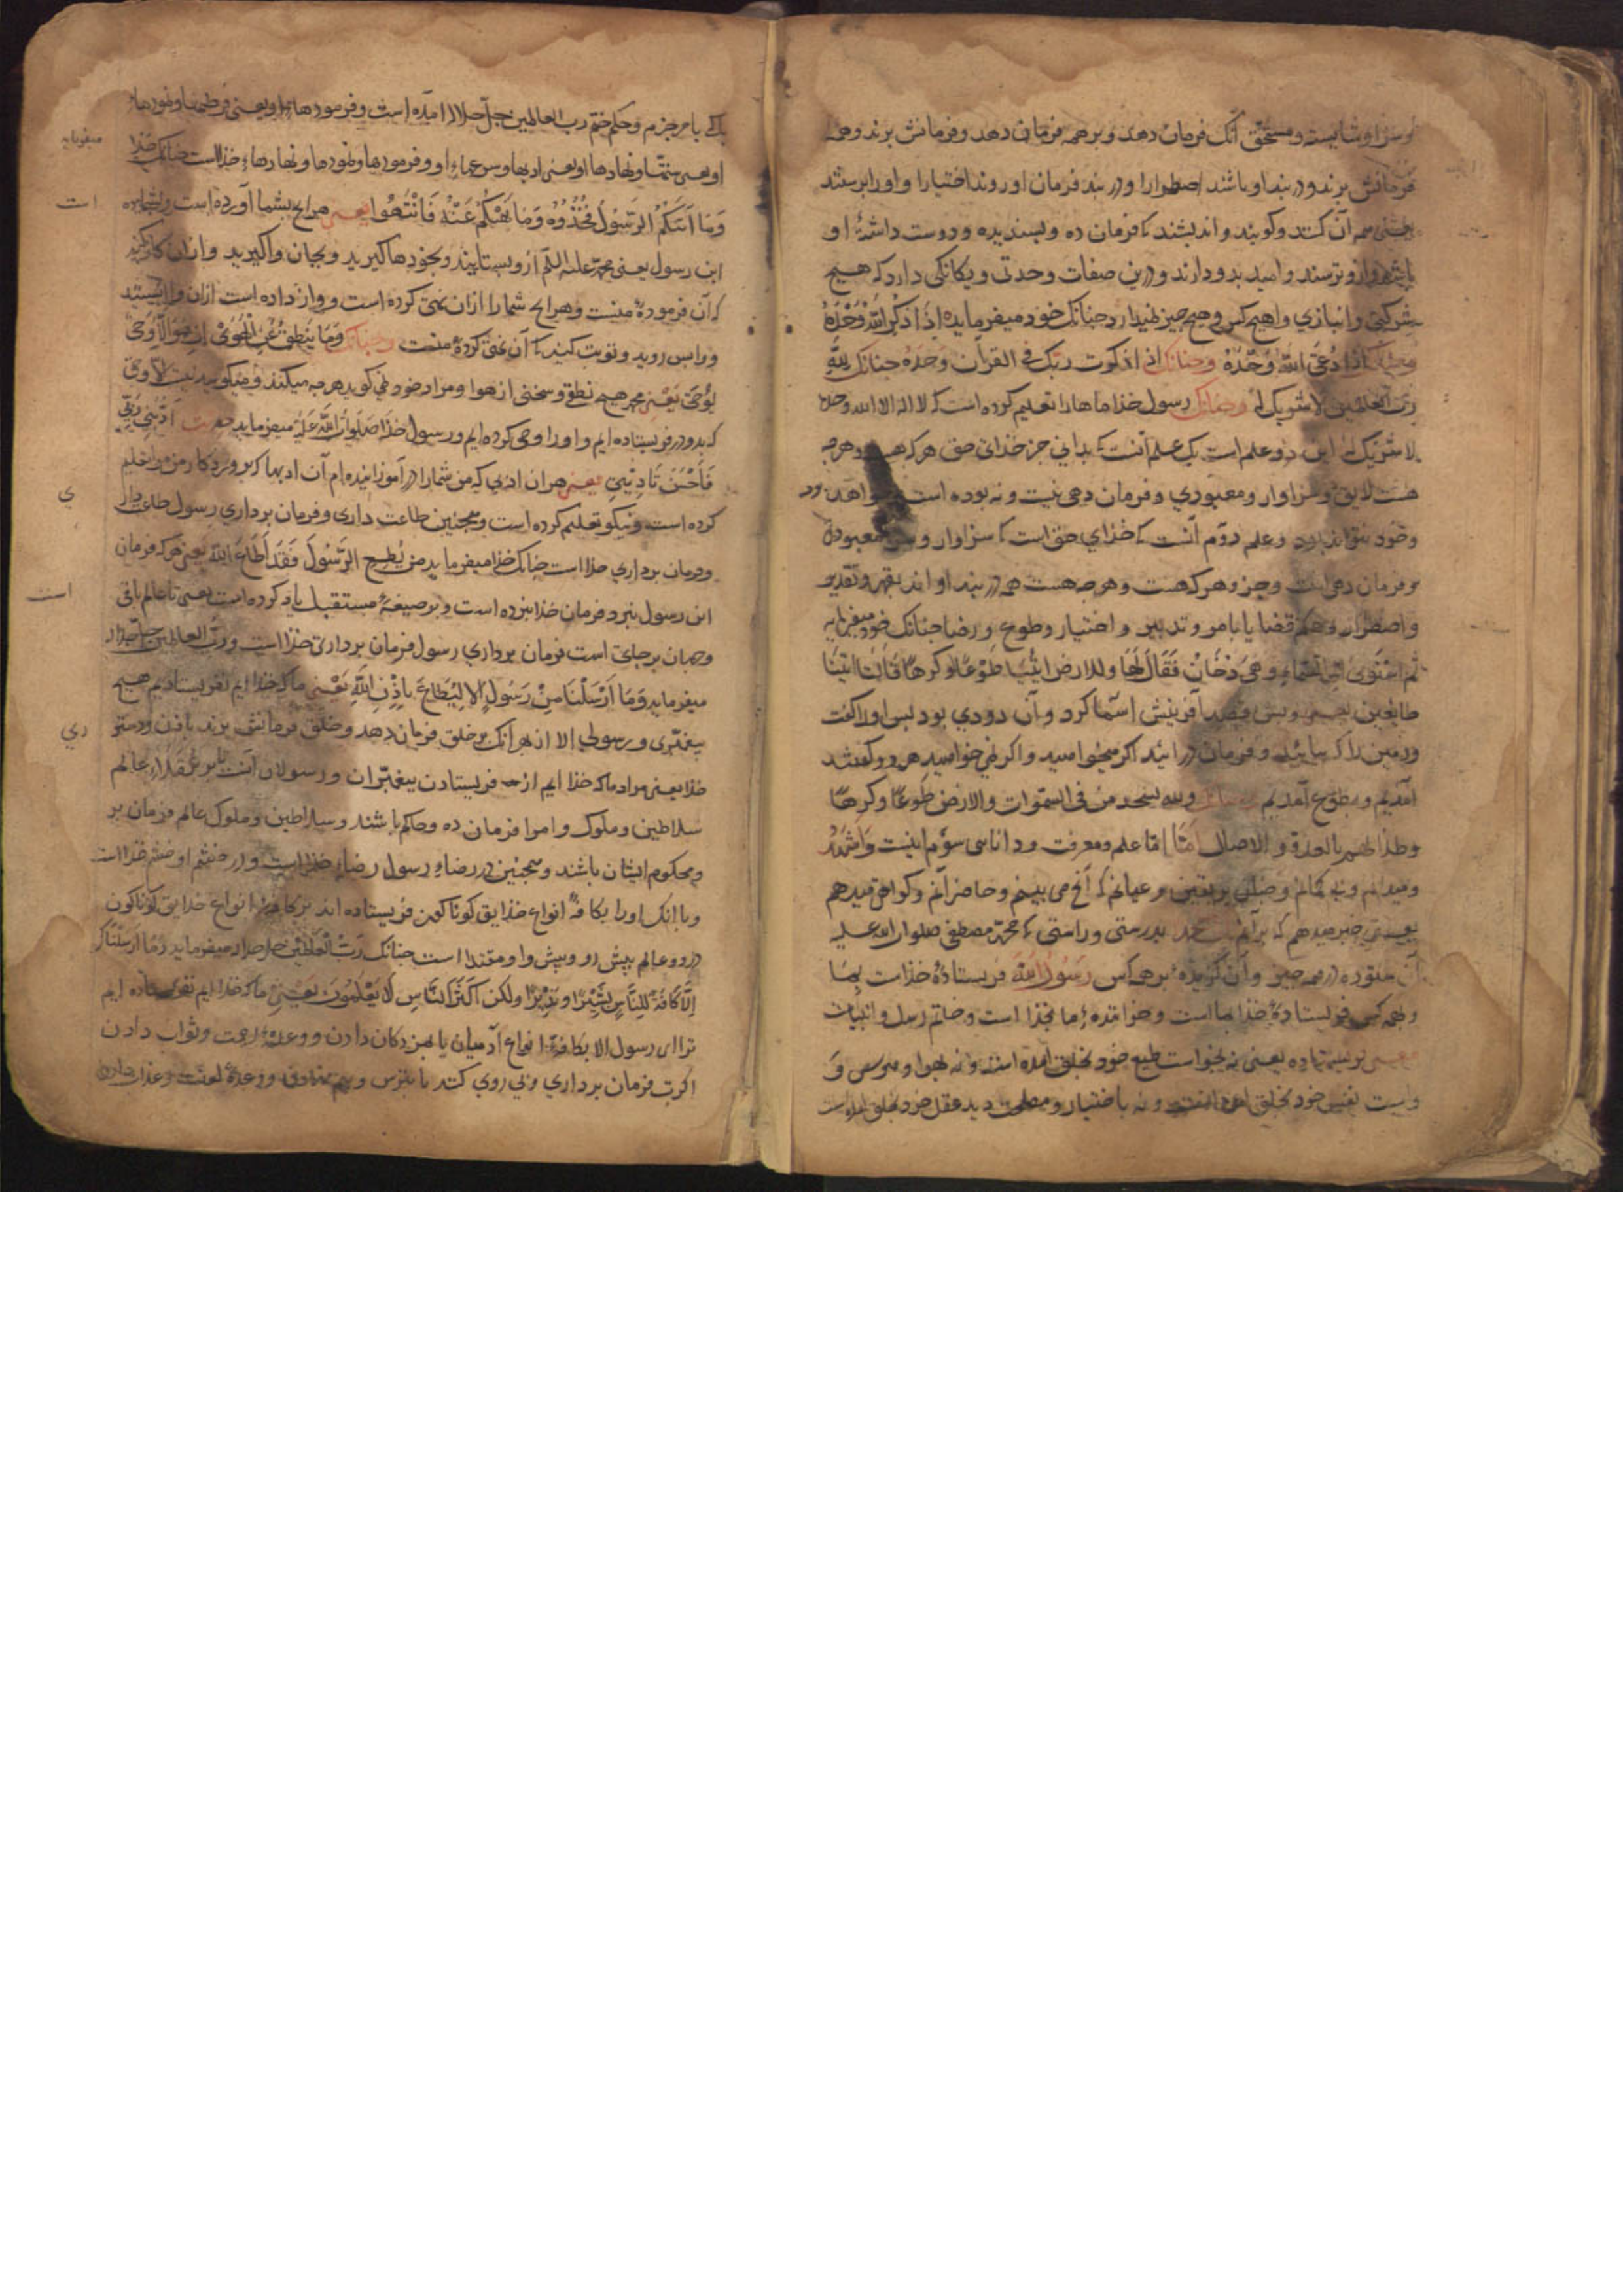 و سزاوار شایسته و مستحق آنک فرمان دهد و بر همه فرمان دهد و فرمانش برند و همه
فرمانش برند و در بند او باشند اضطرارا و در بند فرمان او روند اختیارا و اورا پرستند
همه آن کنند و کویند و اندیشند که فرمان ده و پسندیده و دوست داشتهٔ او
باشد و ازو ترسند و امید بدو دارند و درین صفات وحدتی و یکانکی دارد که هیچ
شرکتی و انبازی و اهیچ کس و هیچ چیز نبندارد جنانک خود میفرماید اذا ذکر الله وحده
اذا دعی الله وحده و جنانک اذا ذکرت ربک فی القرآن وحده جنانک لله
رب العالمین لا شریک له و جنانک رسول خدا ماها را تعلیم کرده است که لا اله الا الله وحده
لا شریک له این دو علم است یک علم آنست که بدانی جز خدای حق هرکه هست و هرجه
هست لایق و سزاوار و معبودی و فرمان دهی نیست و نه بوده است و نخواهد بود
و خود نتواند بود و علم دوم آنست که خدای حق است که سزاوار معبودی
و فرمان دهی است و جزو هرکه هست و هرجه هست همه در بند او اند بقهر و تقدیر
و اضطرار و حکم قضا یا بامر و تدبیر و اختیار و طوع و رضا جنانک خود میفرماید
ثم استوی الی السماء و هی دخان فقال لها و للارض ائتیا طوعا او کرها قالتا اتینا
طایعین یعنی و پس قصد آفرینش اسما کرد و آن دودی بود پس اورا کفت
و زمین را که بیایید و فرمان در آیید اکر میخواهید و اکر نمی خواهید هر دو کفتند
آمدیم و بطوع آمدیم و لله یسجد من فی السموات و الارض طوعا و کرها
و ظلالهم بالغدو و الاصال امّا علم و معرفت و دانایی سوّم اینست و اشهد
و میدانم و نه کمانم و ظنّی بر یقین و عیانم که آنج می بینم و حاضر آنم و کواهی میدهم
یعنی خبر میدهم که بر آنم محمد بدرستی و راستی که محمد مصطفی صلوات الله علیه
آن ستوده در همه جیز و آن کزیده بر همه کس رسول الله فرستادهٔ خداست بما
و بهمه کس فرستادهٔ خدا بما است و خاتم رسل و انبیاست
یعنی فرستاده یعنی نه بخواست طبع خود بخلق آمده است و نه بهوا و هوس و
نفس خود بخلق آمده است و نه باختیار و مصلحت دید عقل خود بخلق آمده است
بلک بامر جزم و حکم ختم رب العالمین جل جلاله آمده است و فرمودها او یعنی
او یعنی سنتها و نهادها او یعنی ادبها او و فرمودها و نمودها و نهادها خداست جنانک خدا میفرماید
و ما آتیکم الرسول فخذوه و ما نهیکم عنه فانتهوا یعنی هرانج بشما آورده است
این رسول یعنی محمد علیه السلم ازو بستانید و بخودها کیرید و بجان واکیرید و از آن
که آن فرمودهٔ منست و هرانج شما را ازان نهی کرده است و واز داده است ازان وا ایستید
و وا پس روید و توبت کنید که آن نهی کردهٔ منست و جنانک و ما ینطق عن الهوی ان هو الا وحی
یوحی یعنی محمد هیچ نطق و سخنی از هوا و مراد خود نمی کوید هرجه میکند و میکوید نیست الا وحی
که بدو در فرستاده ایم و اورا وحی کرده ایم و رسول خدا صلوات الله علیه میفرماید ادبنی ربی
فاحسن تادیبی یعنی هران ادبی که من شما را در آموزانیده ام آن ادبها که پروردکار من مرا تعلیم
کرده است و نیکو تعلیم کرده است و همجنین طاعت داری و فرمان برداری رسول طاعت داری
و فرمان برداری خدا است جنانک خدا میفرماید من یطع الرسول فقد اطاع الله یعنی هرکه فرمان
این رسول ببرد فرمان خدا ببرده است و بر صیغهٔ مستقبل یاد کرده است یعنی تا عالم باقی است
و جهان برجای است فرمان برداری رسول فرمان برداری خدا است و رب العالمین جل جلاله
میفرماید و ما ارسلنا من رسول الا لیطاع باذن الله یعنی ما که خدا ایم نفرستادیم هیچ
پیغمبری و رسولی الا از بهر آنک بر خلق فرمان دهد و خلق فرمانش برند باذن و دستوری
خدا یعنی مراد ما که خدا ایم از فرستادن پیغمبران و رسولان آنست تا بر عقلاء عالم
سلاطین و ملوک و امرا فرمان ده و حاکم باشند و سلاطین و ملوک عالم فرمان بر
و محکوم ایشان باشند و همجنین در رضاء رسول رضاء خدا است و در خشم او خشم خدا است
و با آنک اورا بکافهٔ انواع خلایق کوناکون فرستاده اند انواع خلایق کوناکون
در دو عالم پیش رو و پیشوا و مقتدا است جنانک رب العالمین میفرماید و ما ارسلناک
الا کافة للناس بشیرا و نذیرا و لکن اکثر الناس لا یعلمون یعنی ما که خدا ایم نفرستاده ایم
ترا ای رسول الا بکافهٔ انواع آدمیان با مژدکان دادن و وعدهٔ رحمت و ثواب دادن
اکرت فرمان برداری و پی روی کنند یا بترس و بیم و وعدهٔ لعنت و عذاب